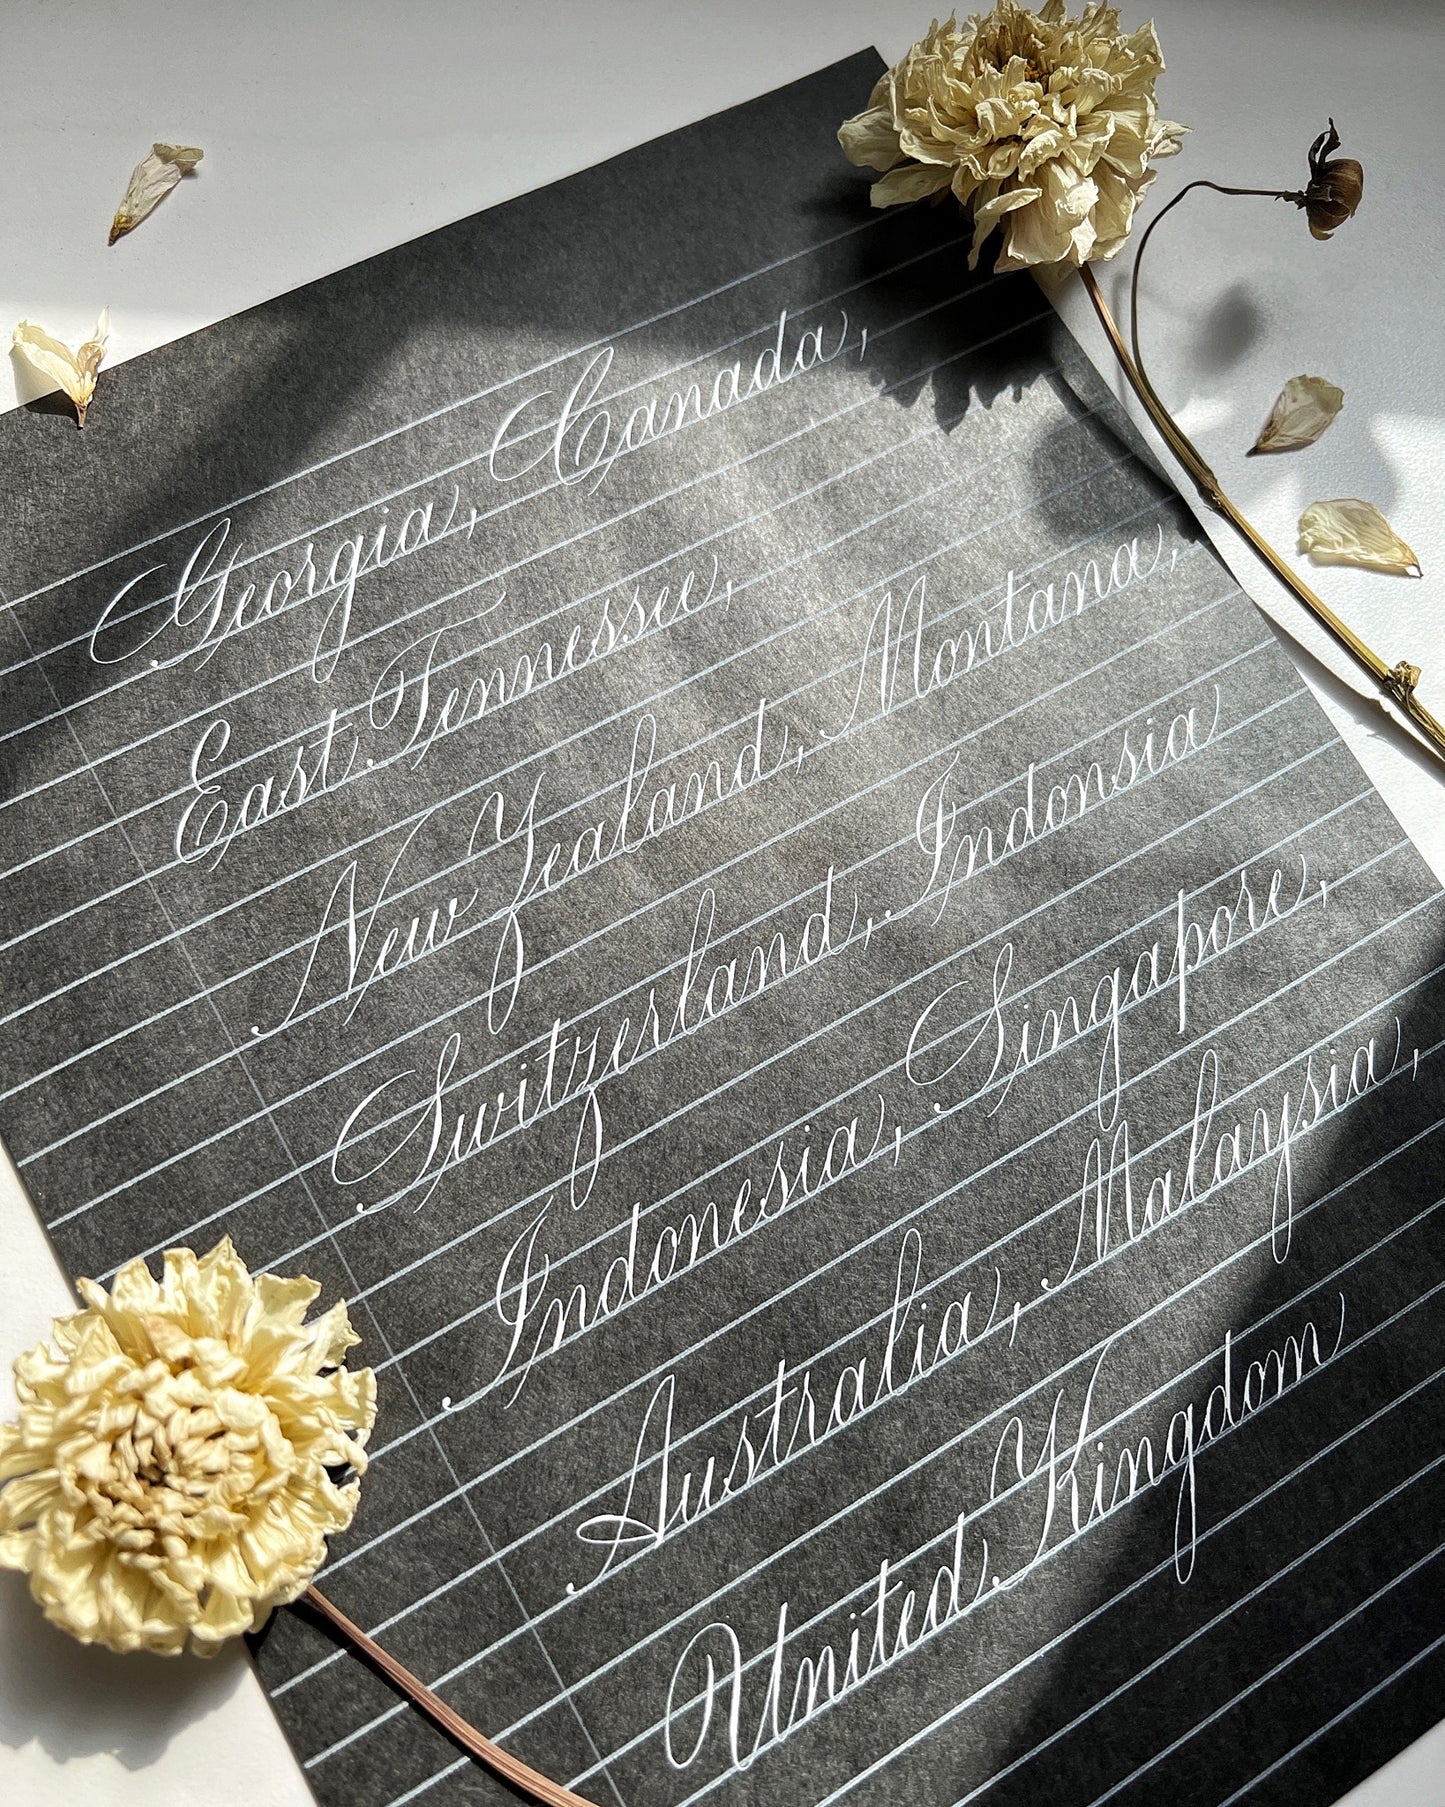 Georgia, Canada,
East Tennessee,
New Zealand, Montana,
Switzerland, Indonsia
Indonesia, Singapore,
Australia, Malaysia,
United Kingdom